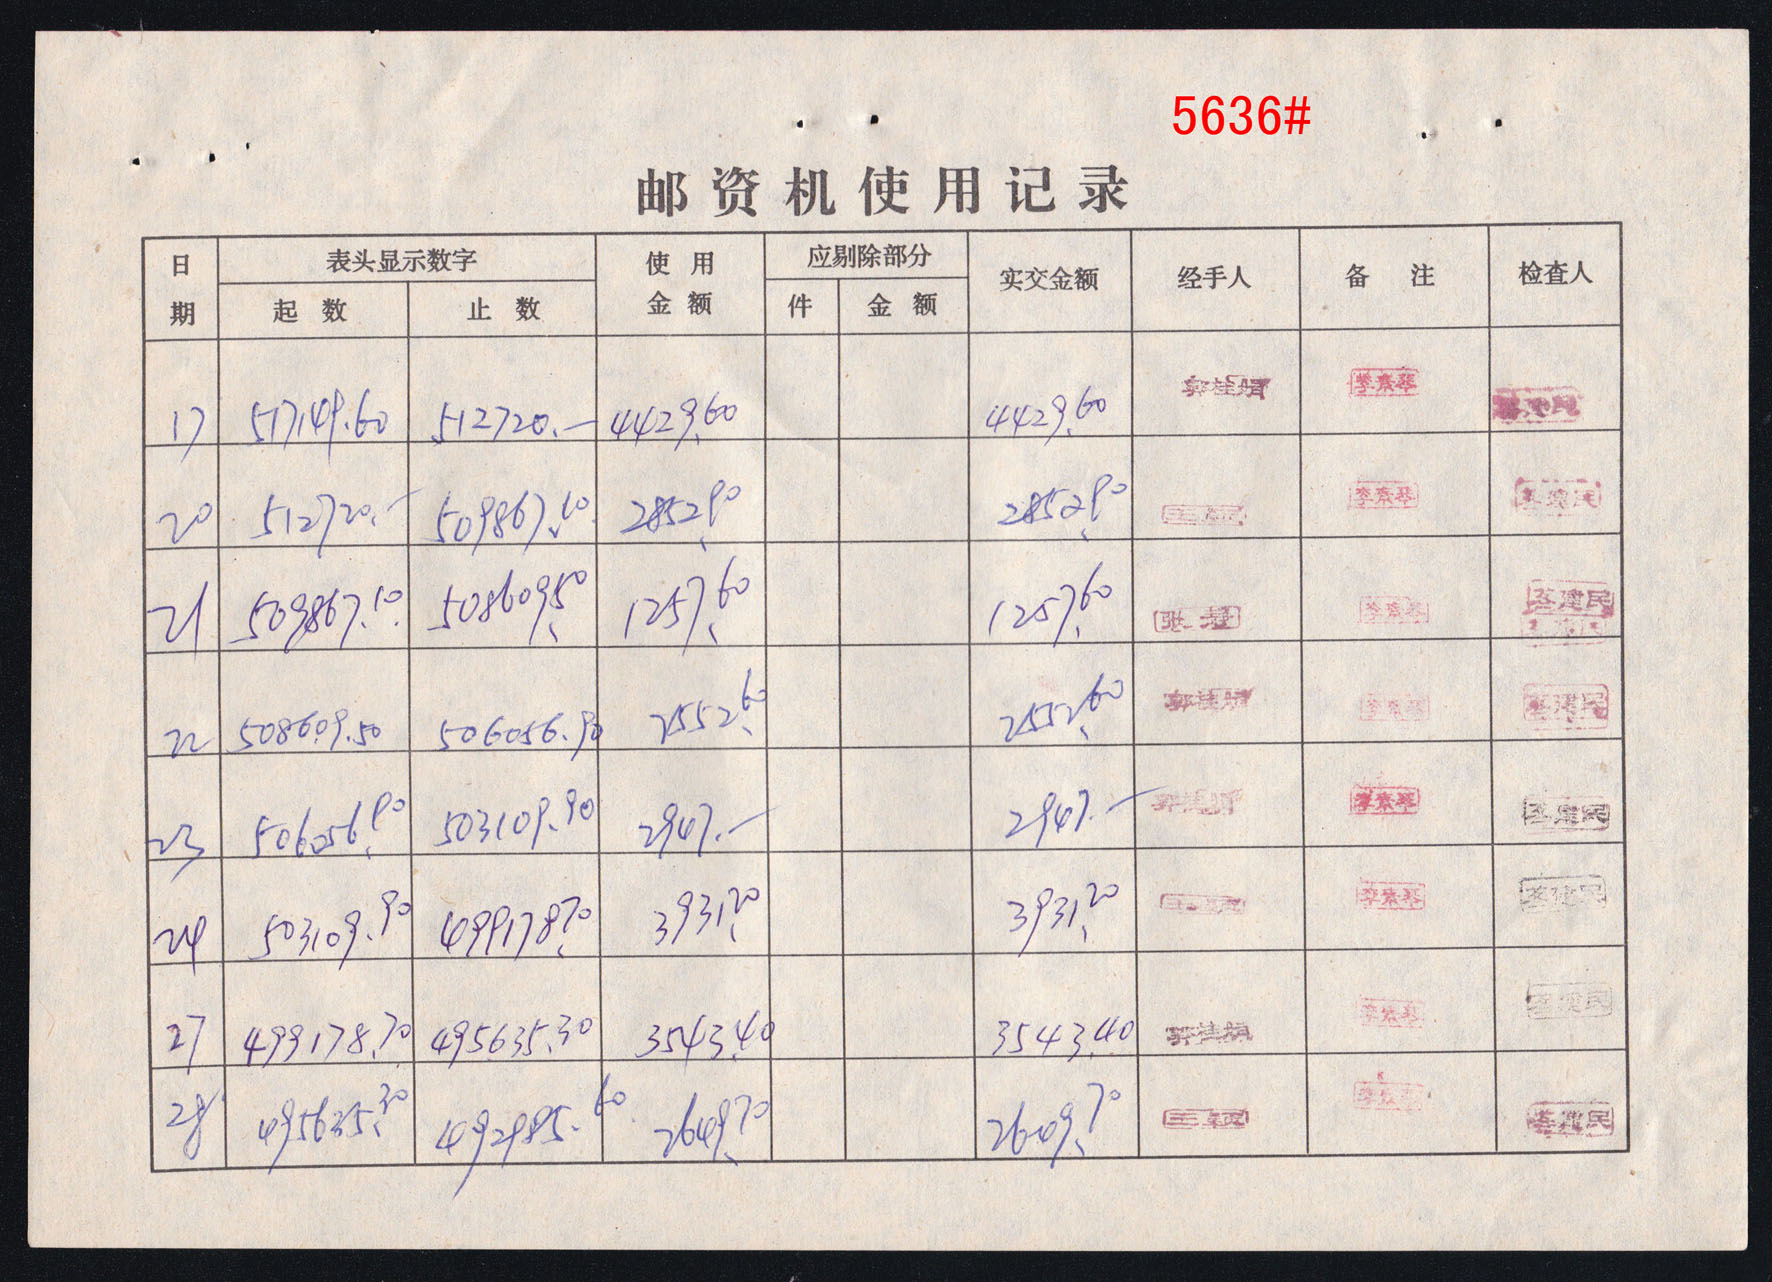 5636#
邮资机使用记录
日期 表头显示数字 使用金额 应剔除部分 实交金额 经手人 备注 检查人
起数 止数 件 金额
17 517149.60 512720.— 4429.60 4429.60 郭桂娟 李素琴 李建民
20 512720.— 509867.10 2852.90 2852.90 李素琴 李建民
21 509867.10 508609.50 1257.60 1257.60 张 李素琴 李建民
22 508609.50 506056.90 2552.60 2552.60 郭桂娟 李素琴 李建民
23 506056.90 503109.90 2947.— 2947.— 郭桂娟 李素琴 李建民
24 503109.90 499178.70 3931.20 3931.20 李素琴 李建民
27 499178.70 495635.30 3543.40 3543.40 郭桂娟 李素琴 李建民
28 495635.30 492985.60 2649.70 2649.70 李素琴 李建民